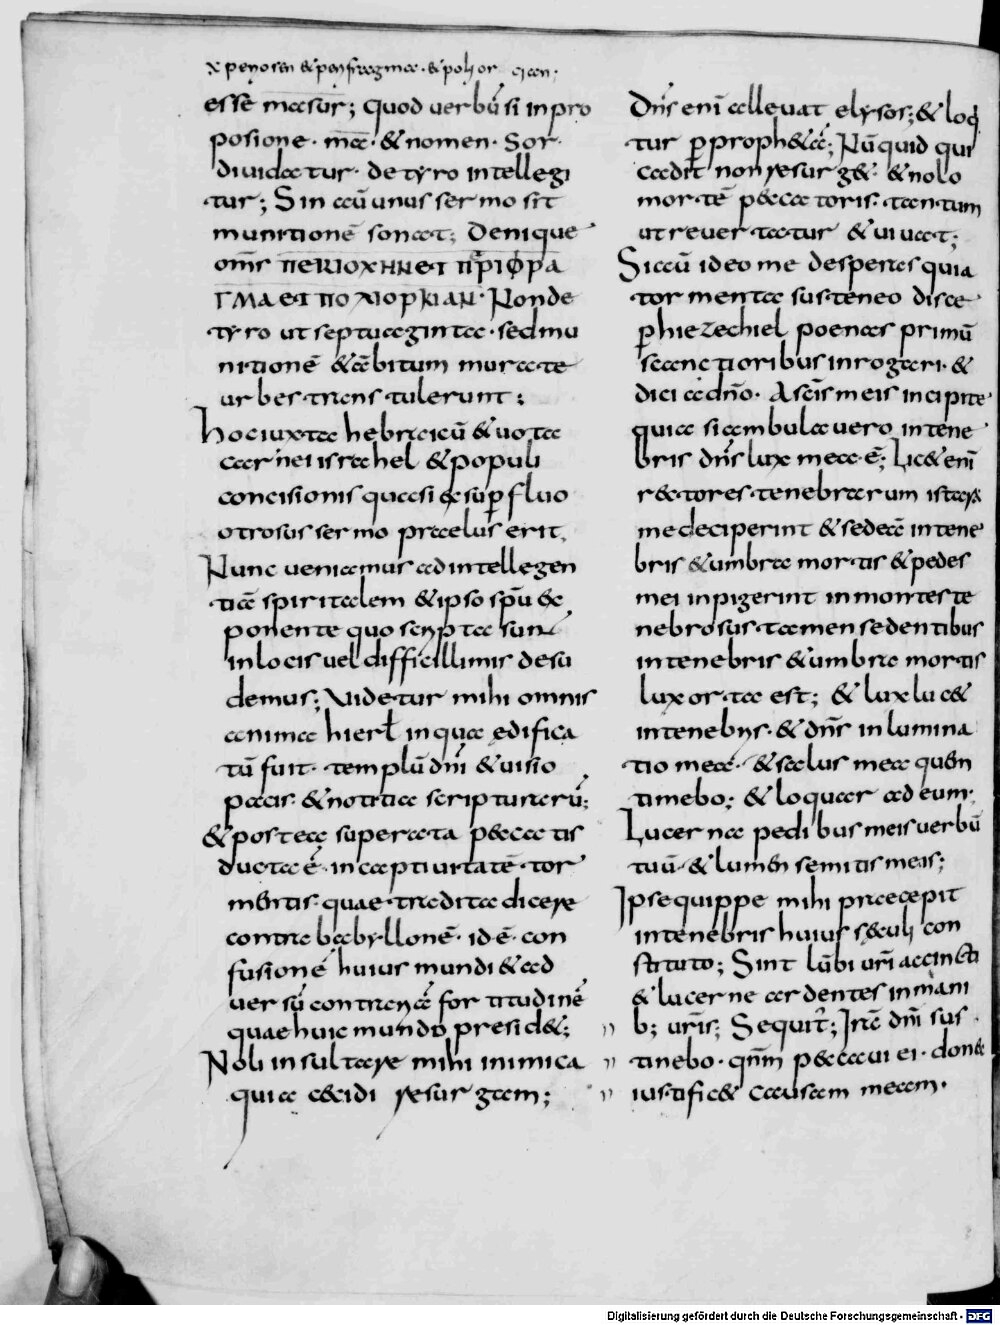 esse masur; quod uerbū si in pro
posione · ma · & nomen · Sor ·
diuidatur · de tyro intellegi
tur; Sin aūt unus sermo sit
munitionē sonat; Denique
om̄s ΠΕΡΙΟΧΗΝ ΕΤ ΠΕΡΙΦΡΑ
ΓΜΑ ΕΤ ΠΟΛΙΟΡΚΙΑΝ · Non de
tyro ut septuaginta · sed mu
nitionē & ābitum murate
urbes transtulerunt;
Hoc iuxta hebraicū & uota
carnei israhel & populi
concisionis quasi & sup̄fluo
otrosus sermo praelus erit,
Nunc ueniamus ad intellegen
tiā spiritalem & ipso sp̄u ex
ponente quo scripta sunt
in locis uel difficillimis desu
demus; Videtur mihi omnis
anima hierl̄ in qua ędifica
tū fuit · templū dn̄i & uisio
pacis · & notitia scripturarū;
& postea superata peccatis
ducta ē · in captiuitatē · tor
mentis · quae · tradita dicere
contra babyllonē · id · ē · con
fusionē huius mundi & ad
uersū contrariā fortitudinē
quae huic mundo presid&;
Noli insultare mihi inimica
quia cecidi resurgam;
Dn̄s enī alleuat elysos; & loq̄
tur p̄ proph&ā; Nūquid qui
cadit non resurg& · & nolo
mortē peccatoris · tantum
ut reuertatur & uiuat;
Si aūt ideo me desperas quia
tormenta susteneo disce
p̄ hiezechiel poenas primū
sanctioribus inrogari · &
dici a dn̄o · A sc̄is meis incipite
quia si ambulauero in tene
bris dn̄s lux mea · ē; Lic& enī
r&tores tenebrarum istarū
me deciperint & sedeā in tene
bris & umbra mortis & pedes
mei inpigerint in montes te
nebrosus · tamen sedentibus
in tenebris & umbra mortis
lux orta est; & lux luc&
in tenebris · & dn̄s inlumina
tio mea · & salus mea quen
timebo; & loquar ad eum ·
Lucerna pedibus meis uerbū
tuū · & lumen semitis meis;
Ipse quippe mihi praecepit
in tenebris huius sęculi con
stituto; Sint lūbi ur̄i accincti
& lucerne ardentes in mani
b; ur̄is; Sequit̄; Irā dn̄i sus
tinebo · qn̄m peccaui ei · donec
iustific& causam meam ·
Digitalisierung gefördert durch die Deutsche Forschungsgemeinschaft - DFG